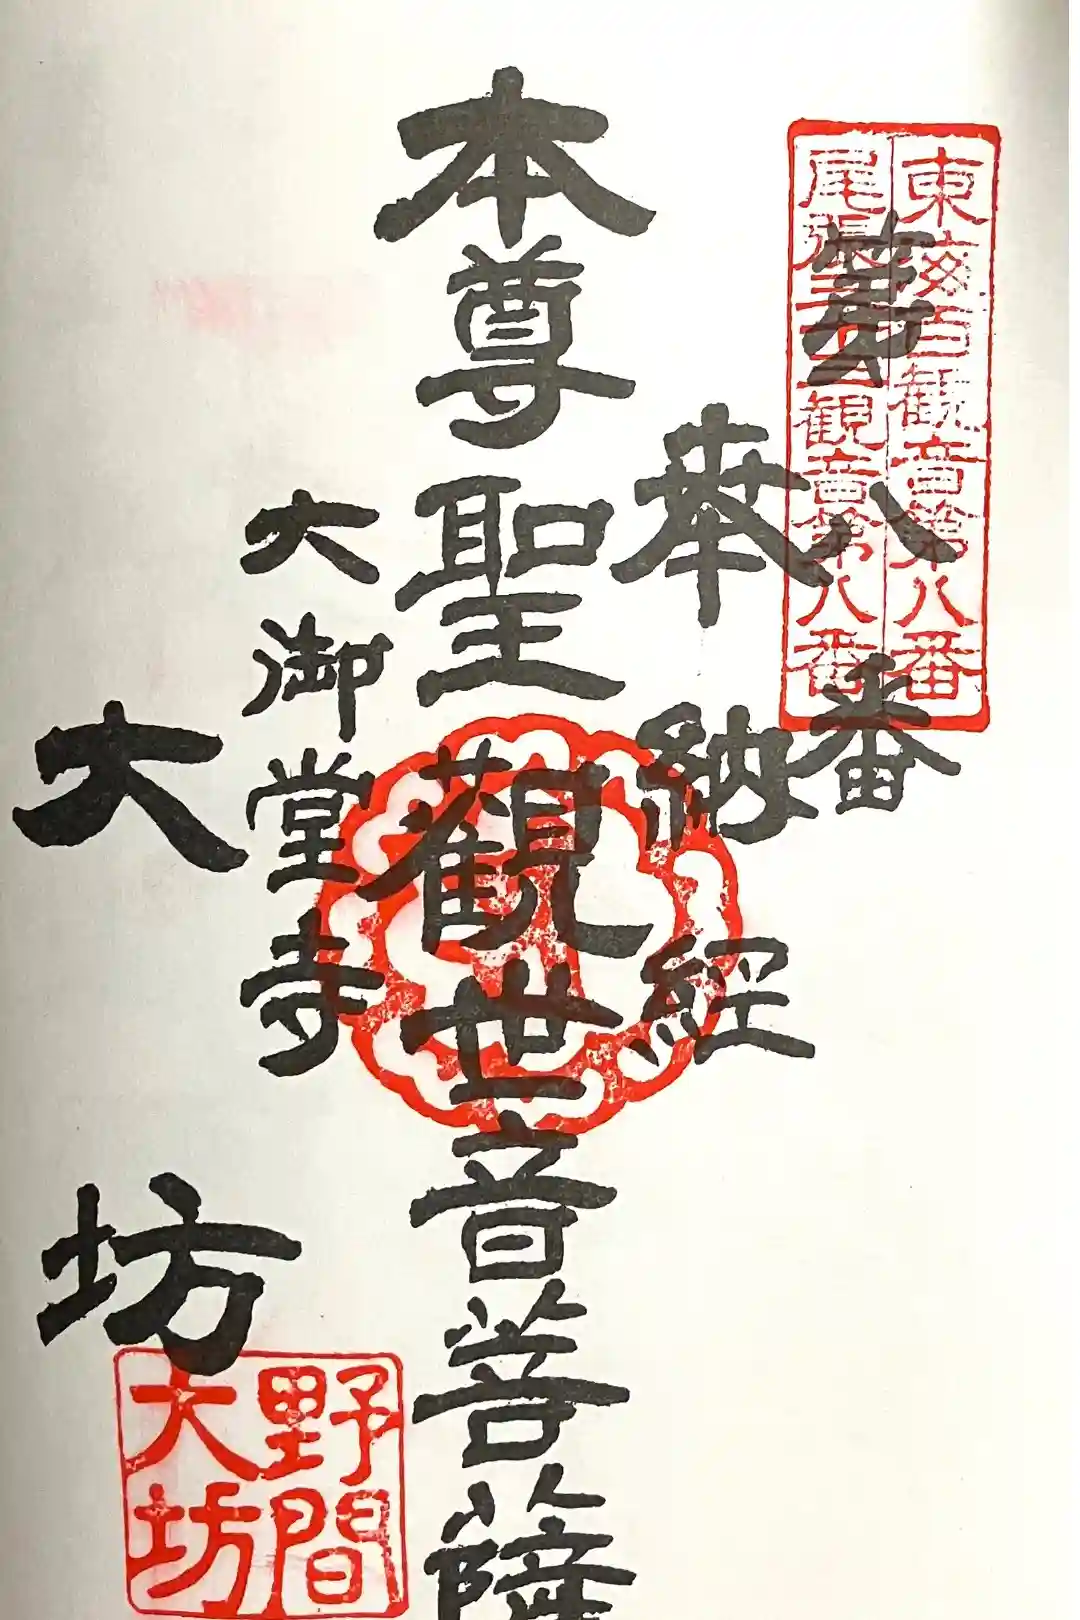 東海百観音第八番
尾張三十三観音第八番
第八番
奉納経
本尊聖観世音菩薩
大御堂寺
大坊
野間
大坊